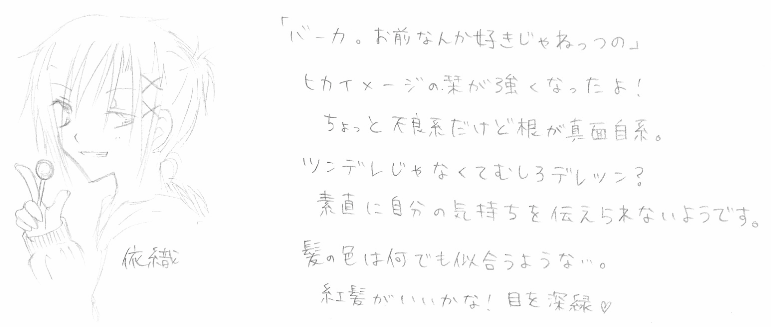 「バーカ。お前なんか好きじゃねっつの」
ヒカイメージの栞が強くなったよ!
ちょっと不良系だけど根が真面目系。
ツンデレじゃなくてむしろデレツン?
素直に自分の気持ちを伝えられないようです。
髪の色は何でも似合うようない。
紅髪がいいかな!目を深緑♡
依織